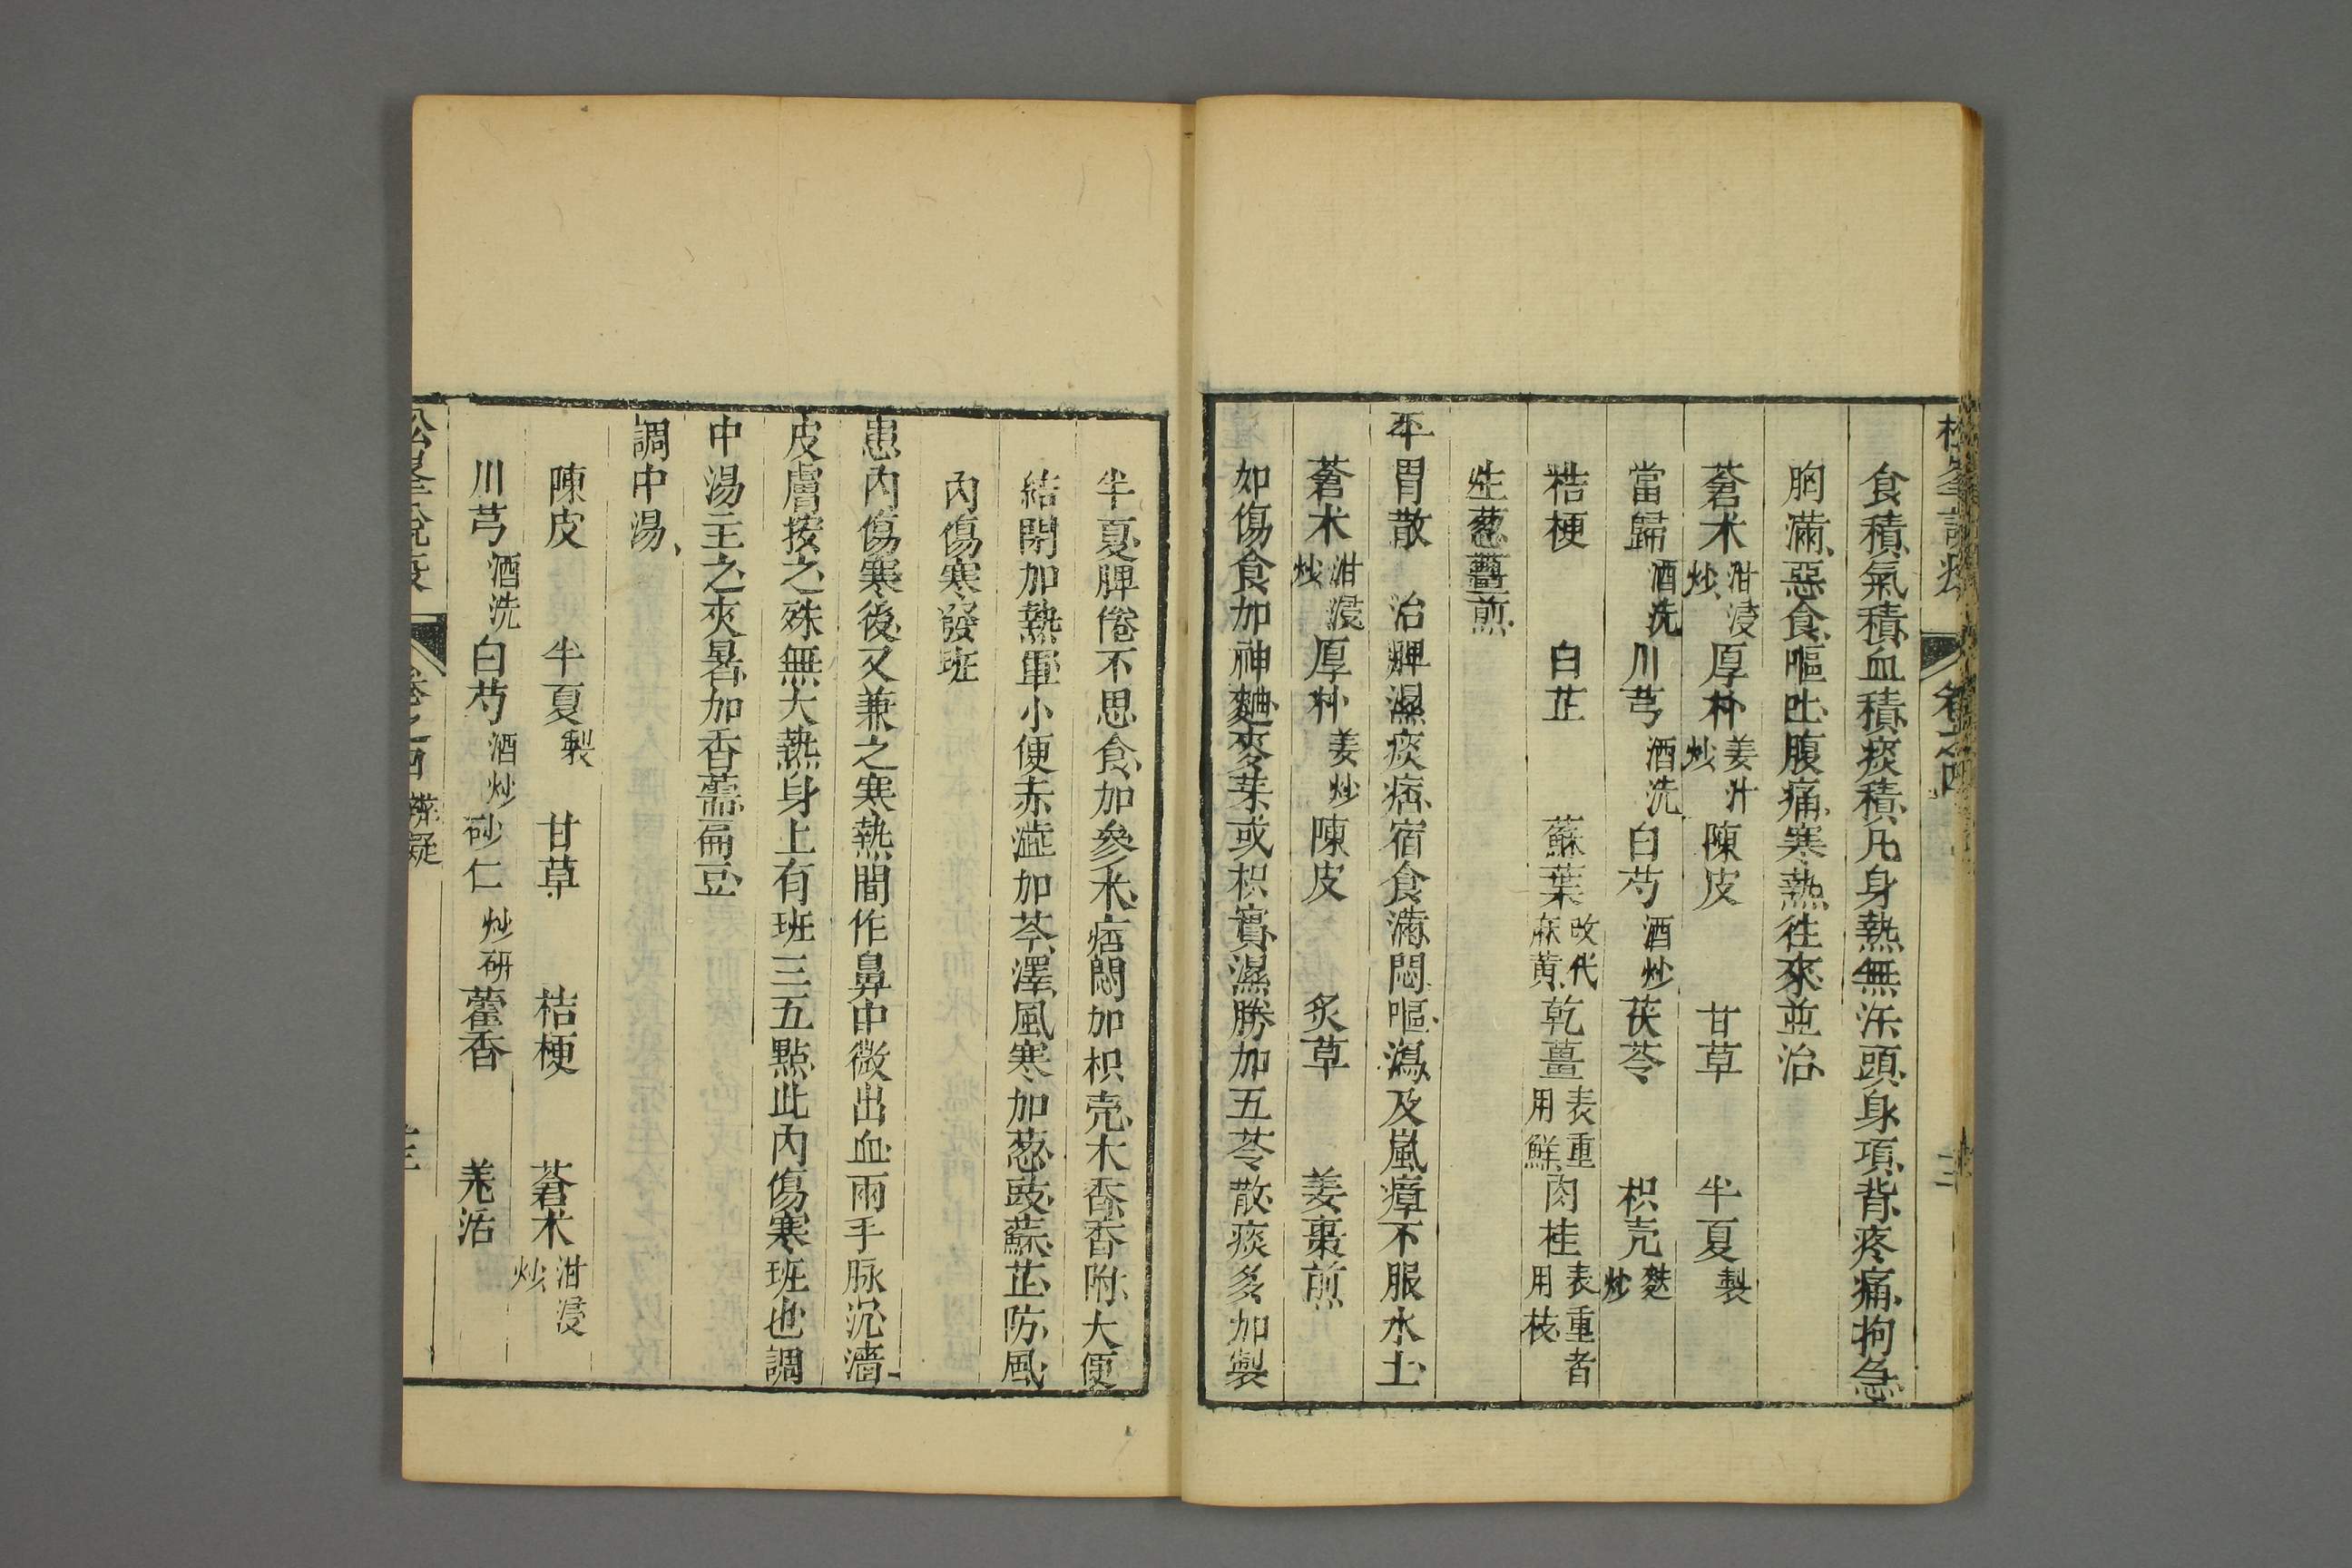 食積氣積血積痰積凡身熱無汗頭身項背疼痛拘急
胸滿惡食嘔吐腹痛寒熱往來並治
蒼朮泔浸炒 厚朴姜汁炒 陳皮 甘草 半夏製
當歸酒洗 川芎酒洗 白芍酒炒 茯苓 枳壳麩炒
桔梗 白芷 蘇葉改代麻黄 乾薑表重用鮮 肉桂表重者用枝
生葱薑煎
平胃散 治脾濕痰痞宿食滿悶嘔瀉及嵐瘴不服水土
蒼朮泔浸炒 厚朴姜炒 陳皮 炙草 姜棗煎
如傷食加神麯麥芽或枳實濕勝加五苓散痰多加製
半夏脾倦不思食加參朮痞悶加枳壳木香香附大便
結閉加熱軍小便赤澁加芩澤風寒加葱豉蘇芷防風
內傷寒發班
患內傷寒後又兼之寒熱間作鼻中微出血兩手脉沉濇
皮膚按之殊無大熱身上有班三五點此內傷寒班也調
中湯主之夾暑加香薷扁豆
調中湯
陳皮 半夏製 甘草 桔梗 蒼朮泔浸炒
川芎酒洗 白芍酒炒 砂仁炒研 藿香 羌活
松峯說疫 卷之四 辨疑